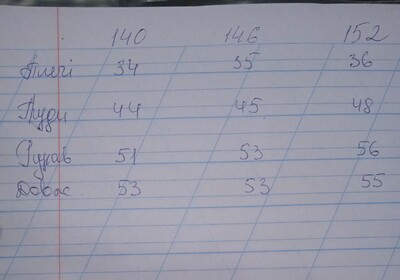 140 146 152
Плечі 34 35 36
Груди 44 45 48
Рукав 51 53 56
Довж 53 53 55